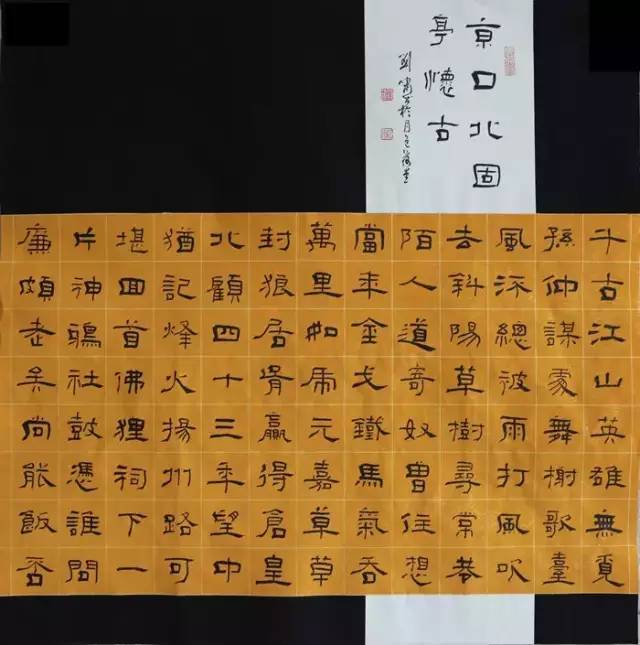 京口北固
亭懷古
千古江山英雄無覓
孫仲謀處舞榭歌臺
風流總被雨打風吹
去斜陽草樹尋常巷
陌人道寄奴曾住想
當年金戈鐵馬氣吞
萬里如虎元嘉草草
封狼居胥贏得倉皇
北顧四十三年望中
猶記烽火揚州路可
堪回首佛狸祠下一
片神鴉社鼓憑誰問
廉頗老矣尚能飯否